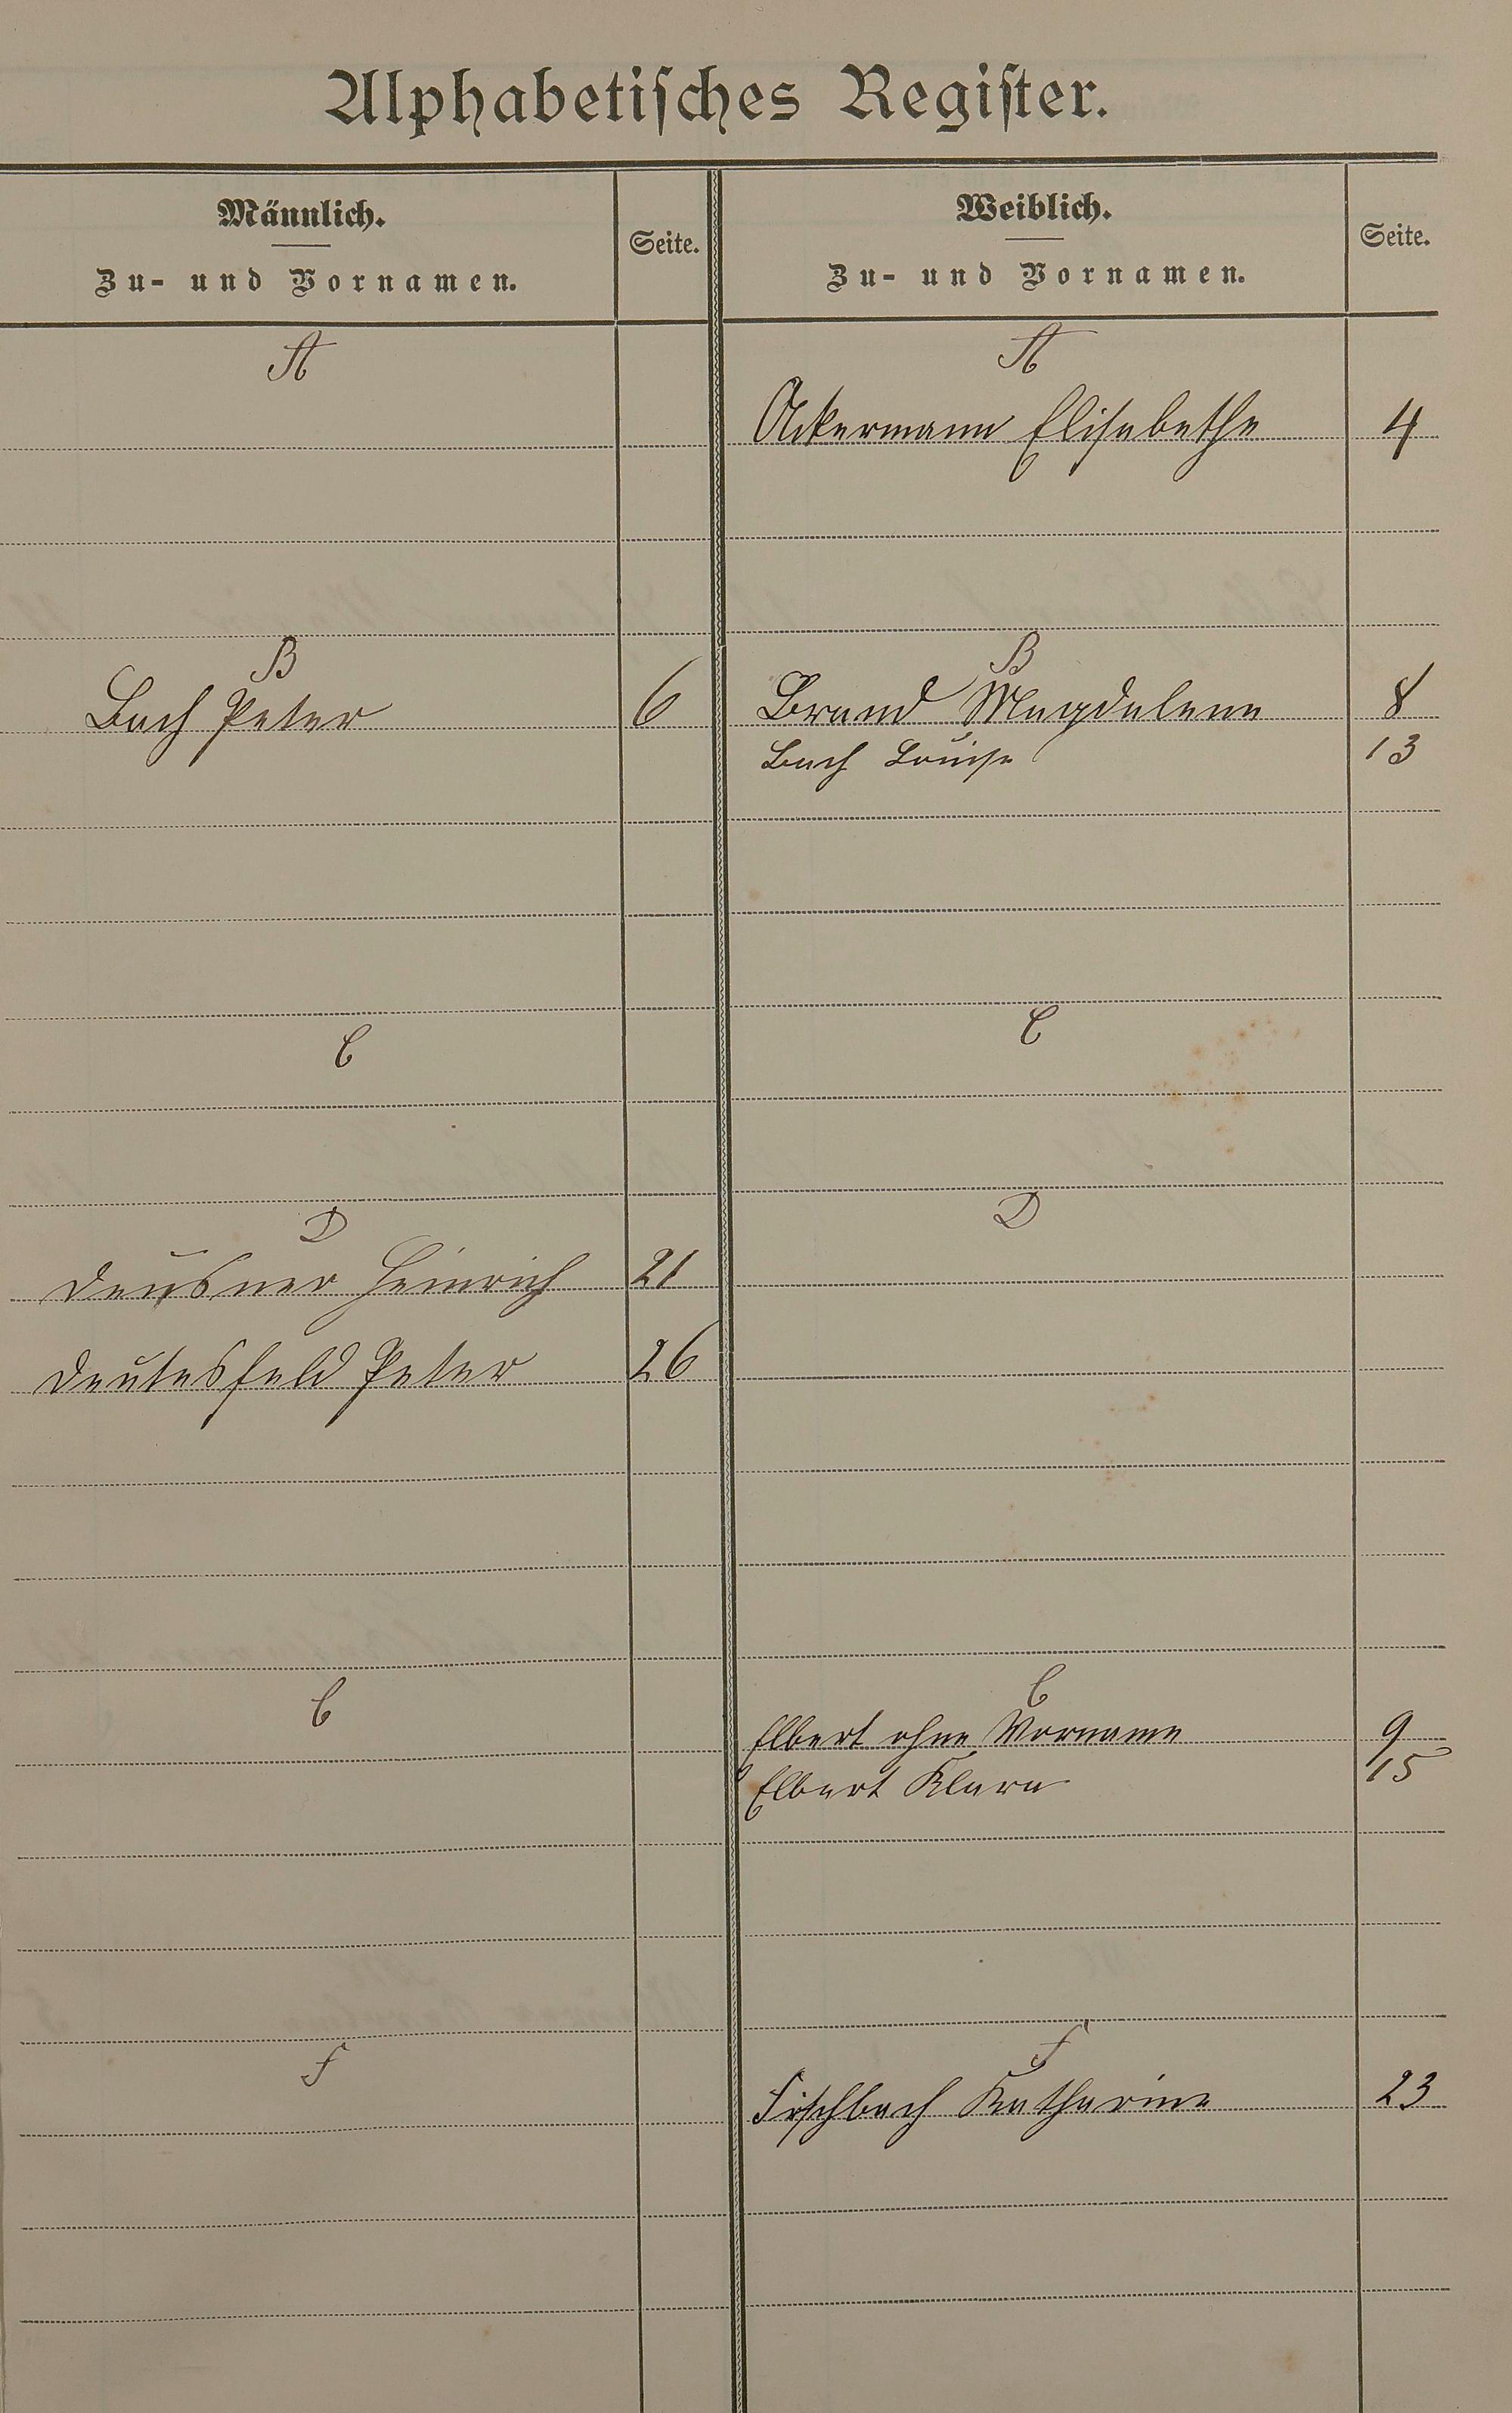 Alphabetisches Register.
Männlich.
Zu- und Vornamen.
Seite.
Weiblich.
Zu- und Vornamen.
Seite.
A
A
Ackermann Elisabethe 4
B
B
Bach Peter 6
Brand Magdalena 8
Bach Louise 13
C
C
D
D
Deusner Heinrich 21
Deutesfeld Peter 26
E
E
Elbert ohne Vorname 9
Elbert Klara 15
F
F
Fischbach Katharine 23